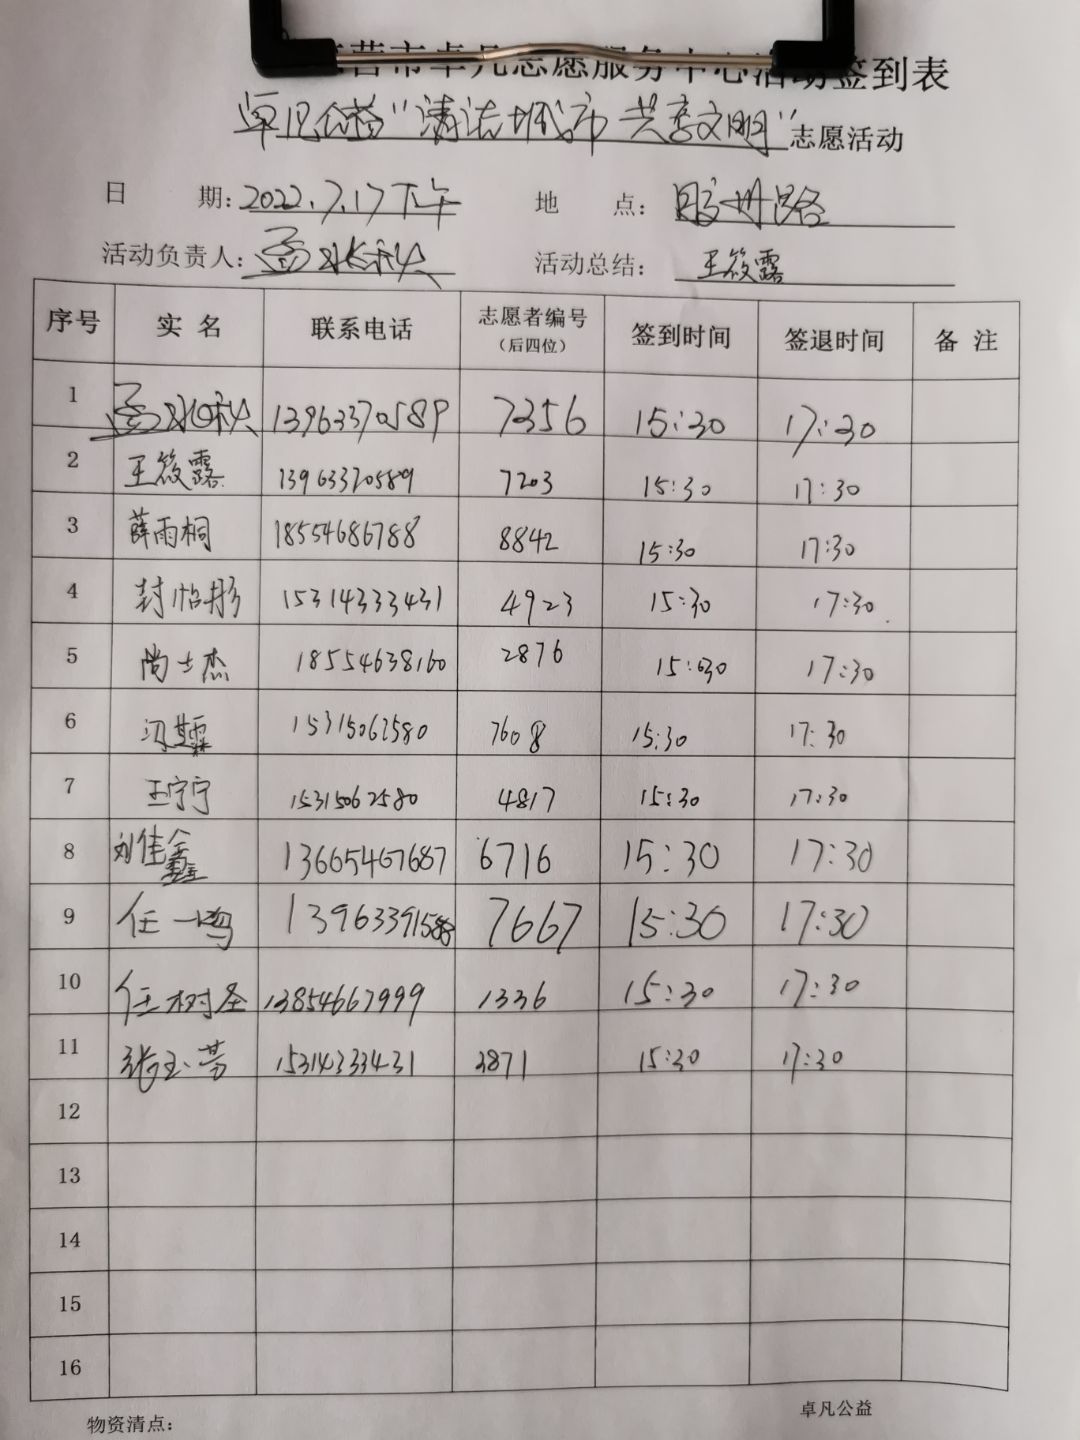 营市卓凡志愿服务中心活动签到表
卓凡公益“清洁城市 共享文明”志愿活动
日 期：2022.7.17下午 地 点：胶州路
活动负责人：孟冰秋 活动总结：王筱露
序号 实名 联系电话 志愿者编号（后四位） 签到时间 签退时间 备注
1 孟冰秋 13963370589 7356 15:30 17:30
2 王筱露 13963370589 7203 15:30 17:30
3 薛雨桐 18554686788 8842 15:30 17:30
4 封怡彤 15314333431 4923 15:30 17:30
5 尚士杰 18554638160 2876 15:30 17:30
6 15315062580 7608 15:30 17:30
7 王宁宁 15315062580 4817 15:30 17:30
8 刘佳鑫 13665467687 6716 15:30 17:30
9 任一鸣 13963391588 7667 15:30 17:30
10 任树圣 13854667999 1336 15:30 17:30
11 张玉芳 15314333431 3871 15:30 17:30
12
13
14
15
16
物资清点： 卓凡公益